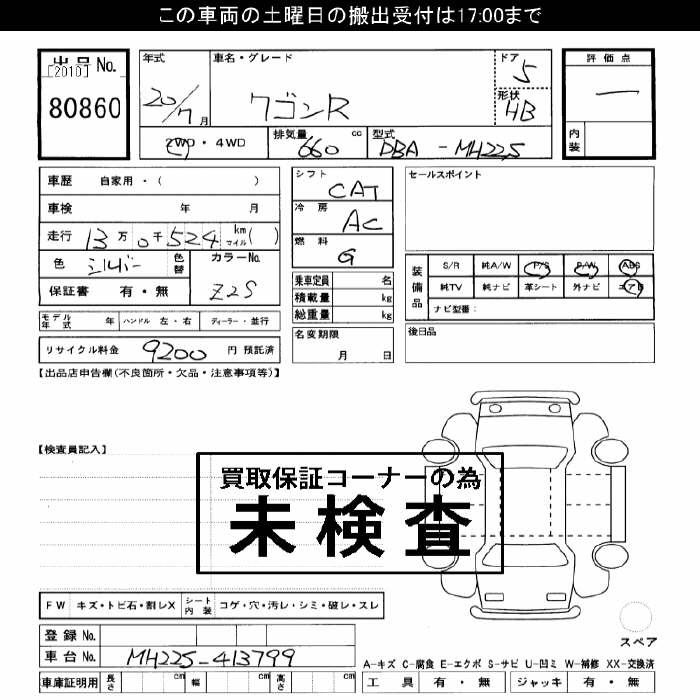 この車両の土曜日の搬出受付は17:00まで
出品No.
[2010]
80860
年式
20/7月
車名・グレード
ワゴンR
ドア
5
形状
HB
評価点
一
内装
2WD・4WD
排気量 cc
660
型式
DBA - MH22S
車歴 自家用・( )
車検 年 月
走行 13万0千524 km マイル( )
色 シルバー 色替 カラーNo.
Z2S
保証書 有・無
シフト
CAT
冷房
AC
燃料
G
乗車定員 名
積載量 kg
総重量 kg
セールスポイント
装備品
S/R 純A/W P/S P/W ABS
純TV 純ナビ 革シート 外ナビ エアB
ナビ型番:
モデル年式 年 ハンドル 左・右 ディーラー・並行
リサイクル料金 9200 円 預託済
名変期限
月 日
後日品
【出品店申告欄(不良箇所・欠品・注意事項等)】
【検査員記入】
買取保証コーナーの為
未検査
FW キズ・トビ石・割レX シート内装 コゲ・穴・汚レ・シミ・破レ・スレ
登録No.
車台No. MH22S-413799
車庫証明用 長さ cm 幅 cm 高さ cm
スペア
A-キズ C-腐食 E-エクボ S-サビ U-凹ミ W-補修 XX-交換済
工具 有・無 ジャッキ 有・無